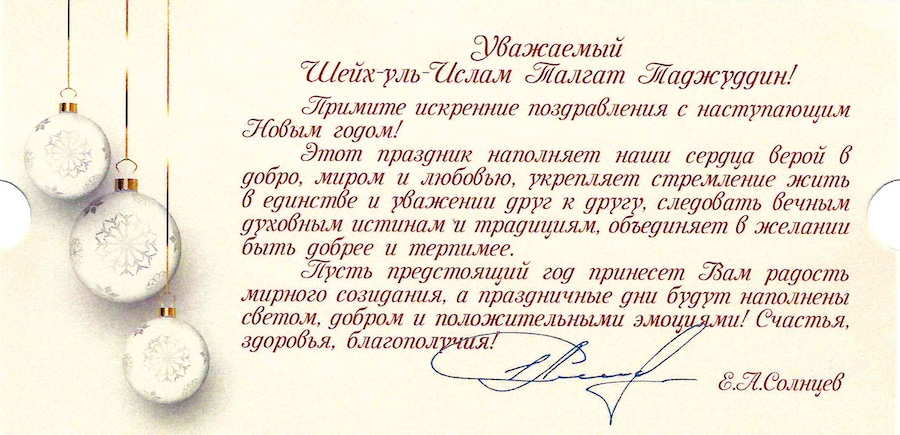 Уважаемый
Шейх-уль-Ислам Талгат Таджуддин!
Примите искренние поздравления с наступающим
Новым годом!
Этот праздник наполняет наши сердца верой в
добро, миром и любовью, укрепляет стремление жить
в единстве и уважении друг к другу, следовать вечным
духовным истинам и традициям, объединяет в желании
быть добрее и терпимее.
Пусть предстоящий год принесет Вам радость
мирного созидания, а праздничные дни будут наполнены
светом, добром и положительными эмоциями! Счастья,
здоровья, благополучия!
Е.А.Солнцев